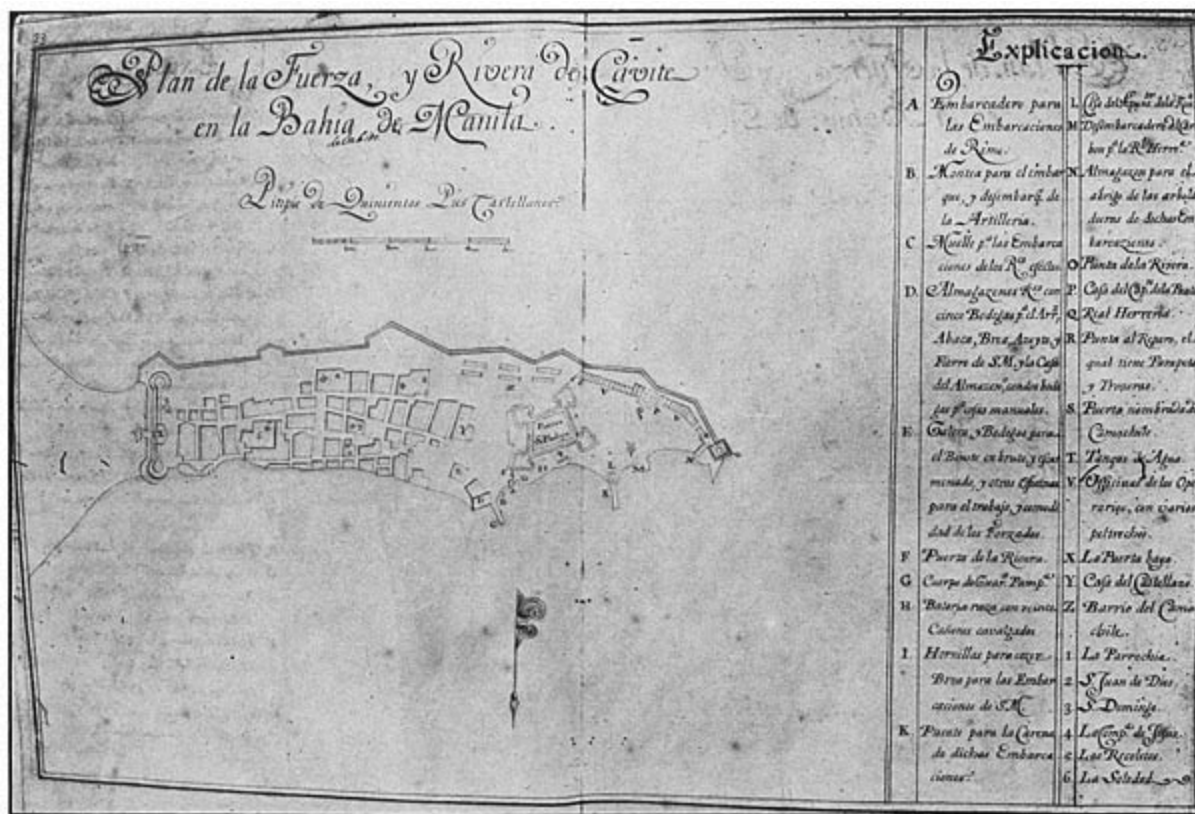 Plan de la Fuerza, y Rivera de Cavite
en la Bahia de Manila.
Pitipie de Quinientos Pies Castellanos
Fuerza
S. Phelipe
Explicacion.
A Embarcadero para
las Embarcaciones
de Rima.
B. Montea para el embar
que, y desembarq. de
la Artilleria.
C Muelle pa. las Embarca
ciones de los Rs. efectos
D. Almagazenes Rs. con
cinco Bodegas pa. el Arr,
Abaca, Brea, Azeyte, y
Fierro de S.M. y la Casa
del Almazen, con dos bode
gas pa. cosas manuales.
E. Galera, y Bodegas para
el Bonote en bruto, y
menado, y otras Officinas
para el trabajo, y comodi
dad de los Forzados.
F Puerta de la Rivera.
G Cuerpo de Guar. Pamp.
H. Bateria raza con veinte
Cañones cavalgados
I. Hornillas para cozer
Brea para las Embar
caciones de S.M.
K. Puente para la Carena
de dichas Embarca
ciones.
L. Casa del de la
M. Desembarcadero del Car
bon pa. la Rl. Herra.
N. Almagazen para el
abrigo de las arbola
duras de dichas Em
barcaziones.
O Punta de la Rivera.
P. Casa del Capn. de la Punta
Q. Rial Herreria.
R. Punta al Reparo, el
qual tiene Parapeto
y Troneras.
S. Puerta nombrada de
Camachile.
T. Tanque de Agua.
V. Officinas de los Ope
rarios, con varios
peltrechos.
X. La Puerta baga.
Y. Casa del Castellano.
Z. Barrio del Cama
chile.
1. La Parrochia.
2 S. Juan de Dios.
3 S. Domingo.
4 La Comp. de Jesus.
5 Los Recoletos.
6. La Soledad